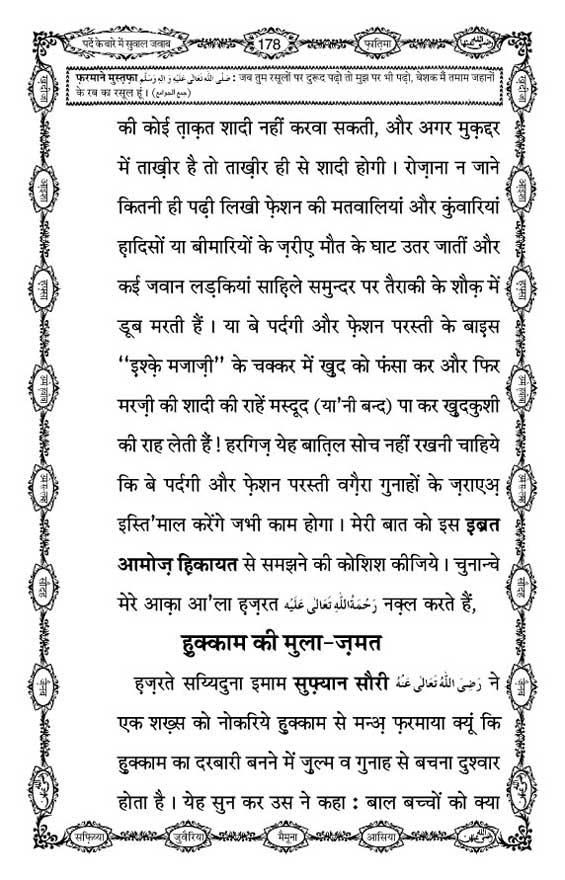 पर्दे के बारे में सुवाल जवाब 178 फ़ातिमा
फ़रमाने मुस्तफ़ा صَلَّى اللهُ تَعَالٰى عَلَيْهِ وَاٰلِهٖ وَسَلَّم : जब तुम रसूलों पर दुरूद पढ़ो तो मुझ पर भी पढ़ो, बेशक मैं तमाम जहानों
के रब का रसूल हूं । (جمع الجوامع)
की कोई त़ाक़त शादी नहीं करवा सकती, और अगर मुक़द्दर
में ताख़ीर है तो ताख़ीर ही से शादी होगी । रोज़ाना न जाने
कितनी ही पढ़ी लिखी फ़ेशन की मतवालियां और कुंवारियां
ह़ादिसों या बीमारियों के ज़रीए मौत के घाट उतर जातीं और
कई जवान लड़कियां साह़िले समुन्दर पर तैराकी के शौक़ में
डूब मरती हैं । या बे पर्दगी और फ़ेशन परस्ती के बाइस
‘‘इ़श्के़ मजाज़ी’’ के चक्कर में खुद को फंसा कर और फिर
मरज़ी की शादी की राहें मस्दूद (या'नी बन्द) पा कर खुदकुशी
की राह लेती हैं ! हरगिज़ येह बात़िल सोच नहीं रखनी चाहिये
कि बे पर्दगी और फ़ेशन परस्ती वग़ैरा गुनाहों के ज़राएअ़
इस्ति'माल करेंगे जभी काम होगा । मेरी बात को इस इ़ब्रत
आमोज़ ह़िकायत से समझने की कोशिश कीजिये । चुनान्चे
मेरे आक़ा आ'ला ह़ज़रत رَحْمَةُاللهِ تَعَالٰى عَلَيْه नक़्ल करते हैं,
हुक्काम की मुला-ज़मत
ह़ज़रते सय्यिदुना इमाम सुफ़्यान सौरी رَضِىَ اللهُ تَعَالٰى عَنْهُ ने
एक शख़्स को नोकरिये हुक्काम से मन्अ़ फ़रमाया क्यूं कि
हुक्काम का दरबारी बनने में ज़ुल्म व गुनाह से बचना दुश्वार
होता है । येह सुन कर उस ने कहा : बाल बच्चों को क्या
सफ़िय्या जुवैरिया मैमूना आसिया